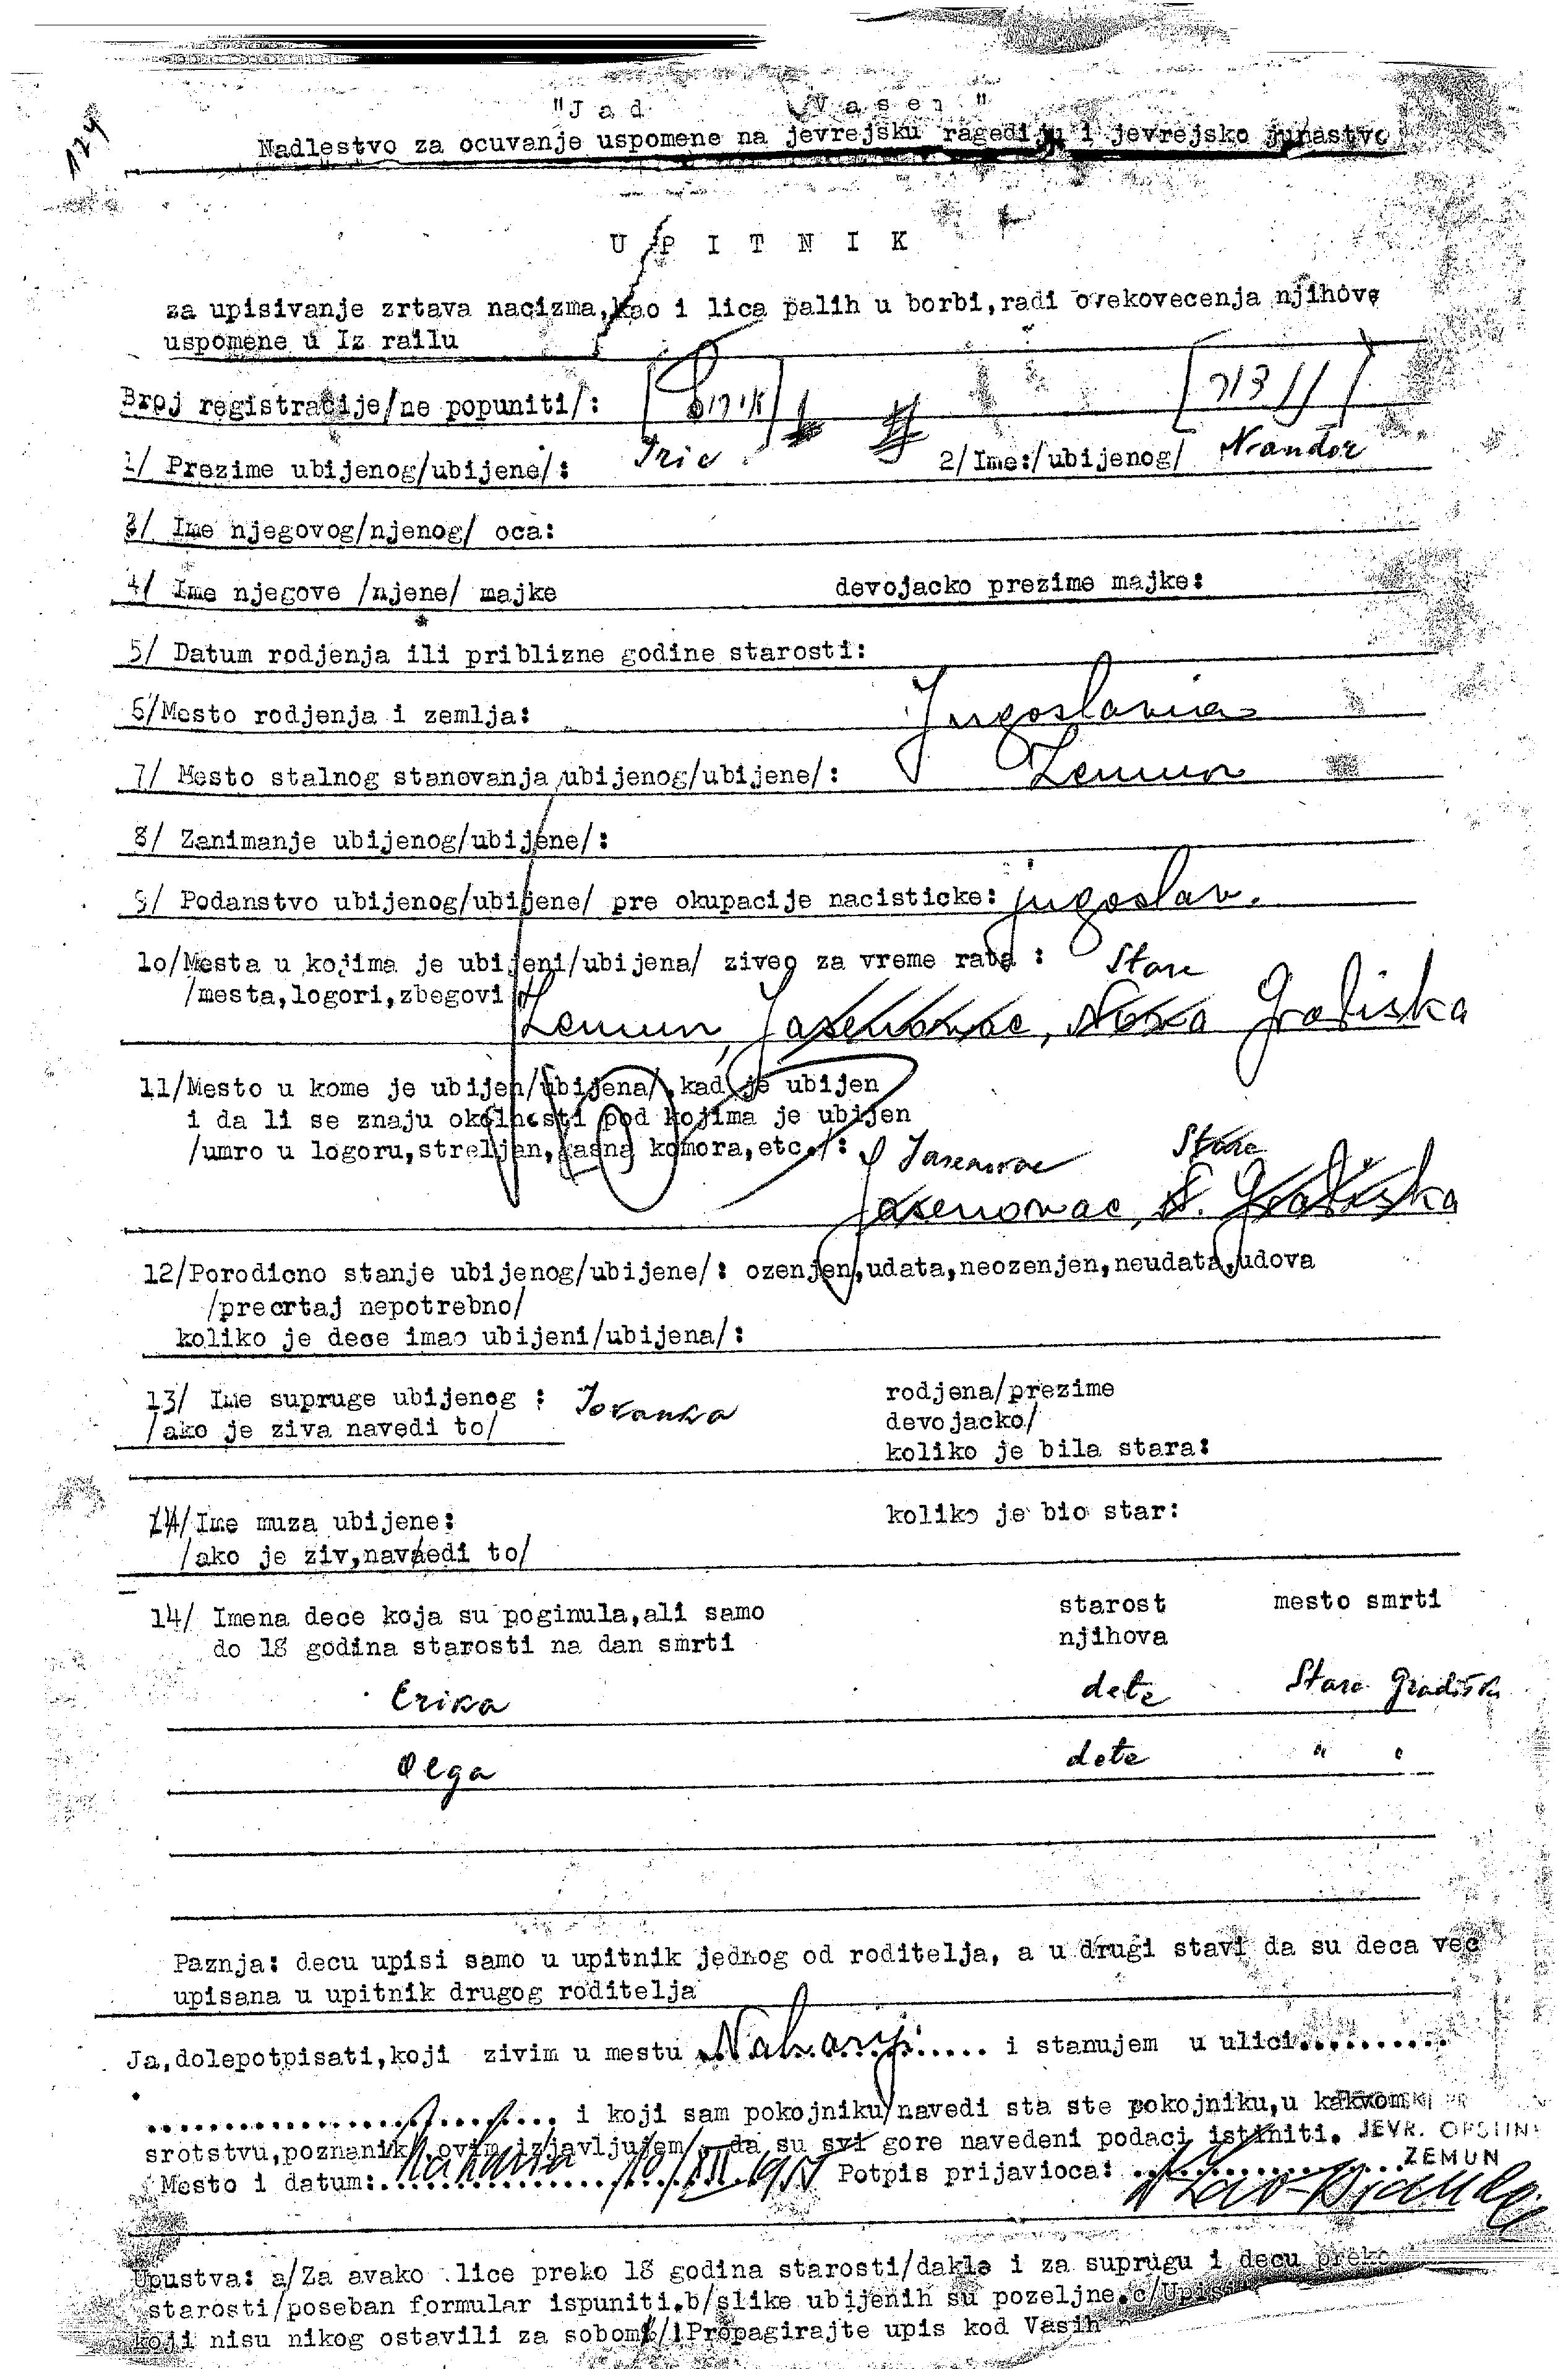 124
"Jad Vasem"
Nadlestvo za ocuvanje uspomene na jevrejsku ragediju i jevrejsko junastvo
UPITNIK
za upisivanje zrtava nacizma,kao i lica palih u borbi,radi ovekovecenja njihove
uspomene u Iz railu
Broj registracije/ne popuniti/:
1/ Prezime ubijenog/ubijene/: Iric 2/Ime:/ubijenog/ Nandor
3/ Ime njegovog/njenog/ oca:
4/ Ime njegove /njene/ majke devojacko prezime majke:
5/ Datum rodjenja ili priblizne godine starosti:
6/Mesto rodjenja i zemlja: Jugoslavia
7/ Mesto stalnog stanovanja ubijenog/ubijene/: Zemun
8/ Zanimanje ubijenog/ubijene/:
9/ Podanstvo ubijenog/ubijene/ pre okupacije nacisticke: jugoslav.
10/Mesta u kojima je ubijeni/ubijena/ ziveo za vreme rata : Stara
/mesta,logori,zbegovi
Zemun, Jasenovac, Nova Gradiska
11/Mesto u kome je ubijen/ubijena/,kad je ubijen
i da li se znaju okolnosti pod kojima je ubijen
/umro u logoru,streljan,gasna komora,etc./: Jasenovac Stara
Jasenovac, S. Gradiška
12/Porodicno stanje ubijenog/ubijene/: ozenjen,udata,neozenjen,neudata,udova
/precrtaj nepotrebno/
koliko je dece imao ubijeni/ubijena/:
13/ Ime supruge ubijenog : Jovanka rodjena/prezime
/ako je ziva navedi to/ devojacko/
koliko je bila stara:
14/Ime muza ubijene: koliko je bio star:
/ako je ziv,navedi to/
14/ Imena dece koja su poginula,ali samo starost mesto smrti
do 18 godina starosti na dan smrti njihova
Erika dete Stara Gradiška
Olga dete " "
Paznja: decu upisi samo u upitnik jednog od roditelja, a u drugi stavi da su deca vec
upisana u upitnik drugog roditelja
Ja,dolepotpisati,koji zivim u mestu Naharyi i stanujem u ulici..........
.......................... i koji sam pokojniku/navedi sta ste pokojniku,u kakvom
srotstvu,poznanik/ ovim izjavljujem/, da su svi gore navedeni podaci istiniti. JEVR. OPSTINE
Mesto i datum: Naharia 10/XII.1955 Potpis prijavioca: ZEMUN
Upustva: a/Za avako lice preko 18 godina starosti/dakle i za suprugu i decu preko
starosti/poseban formular ispuniti.b/slike ubijenih su pozeljne.c/Upisi
koji nisu nikog ostavili za sobom /Propagirajte upis kod Vasih